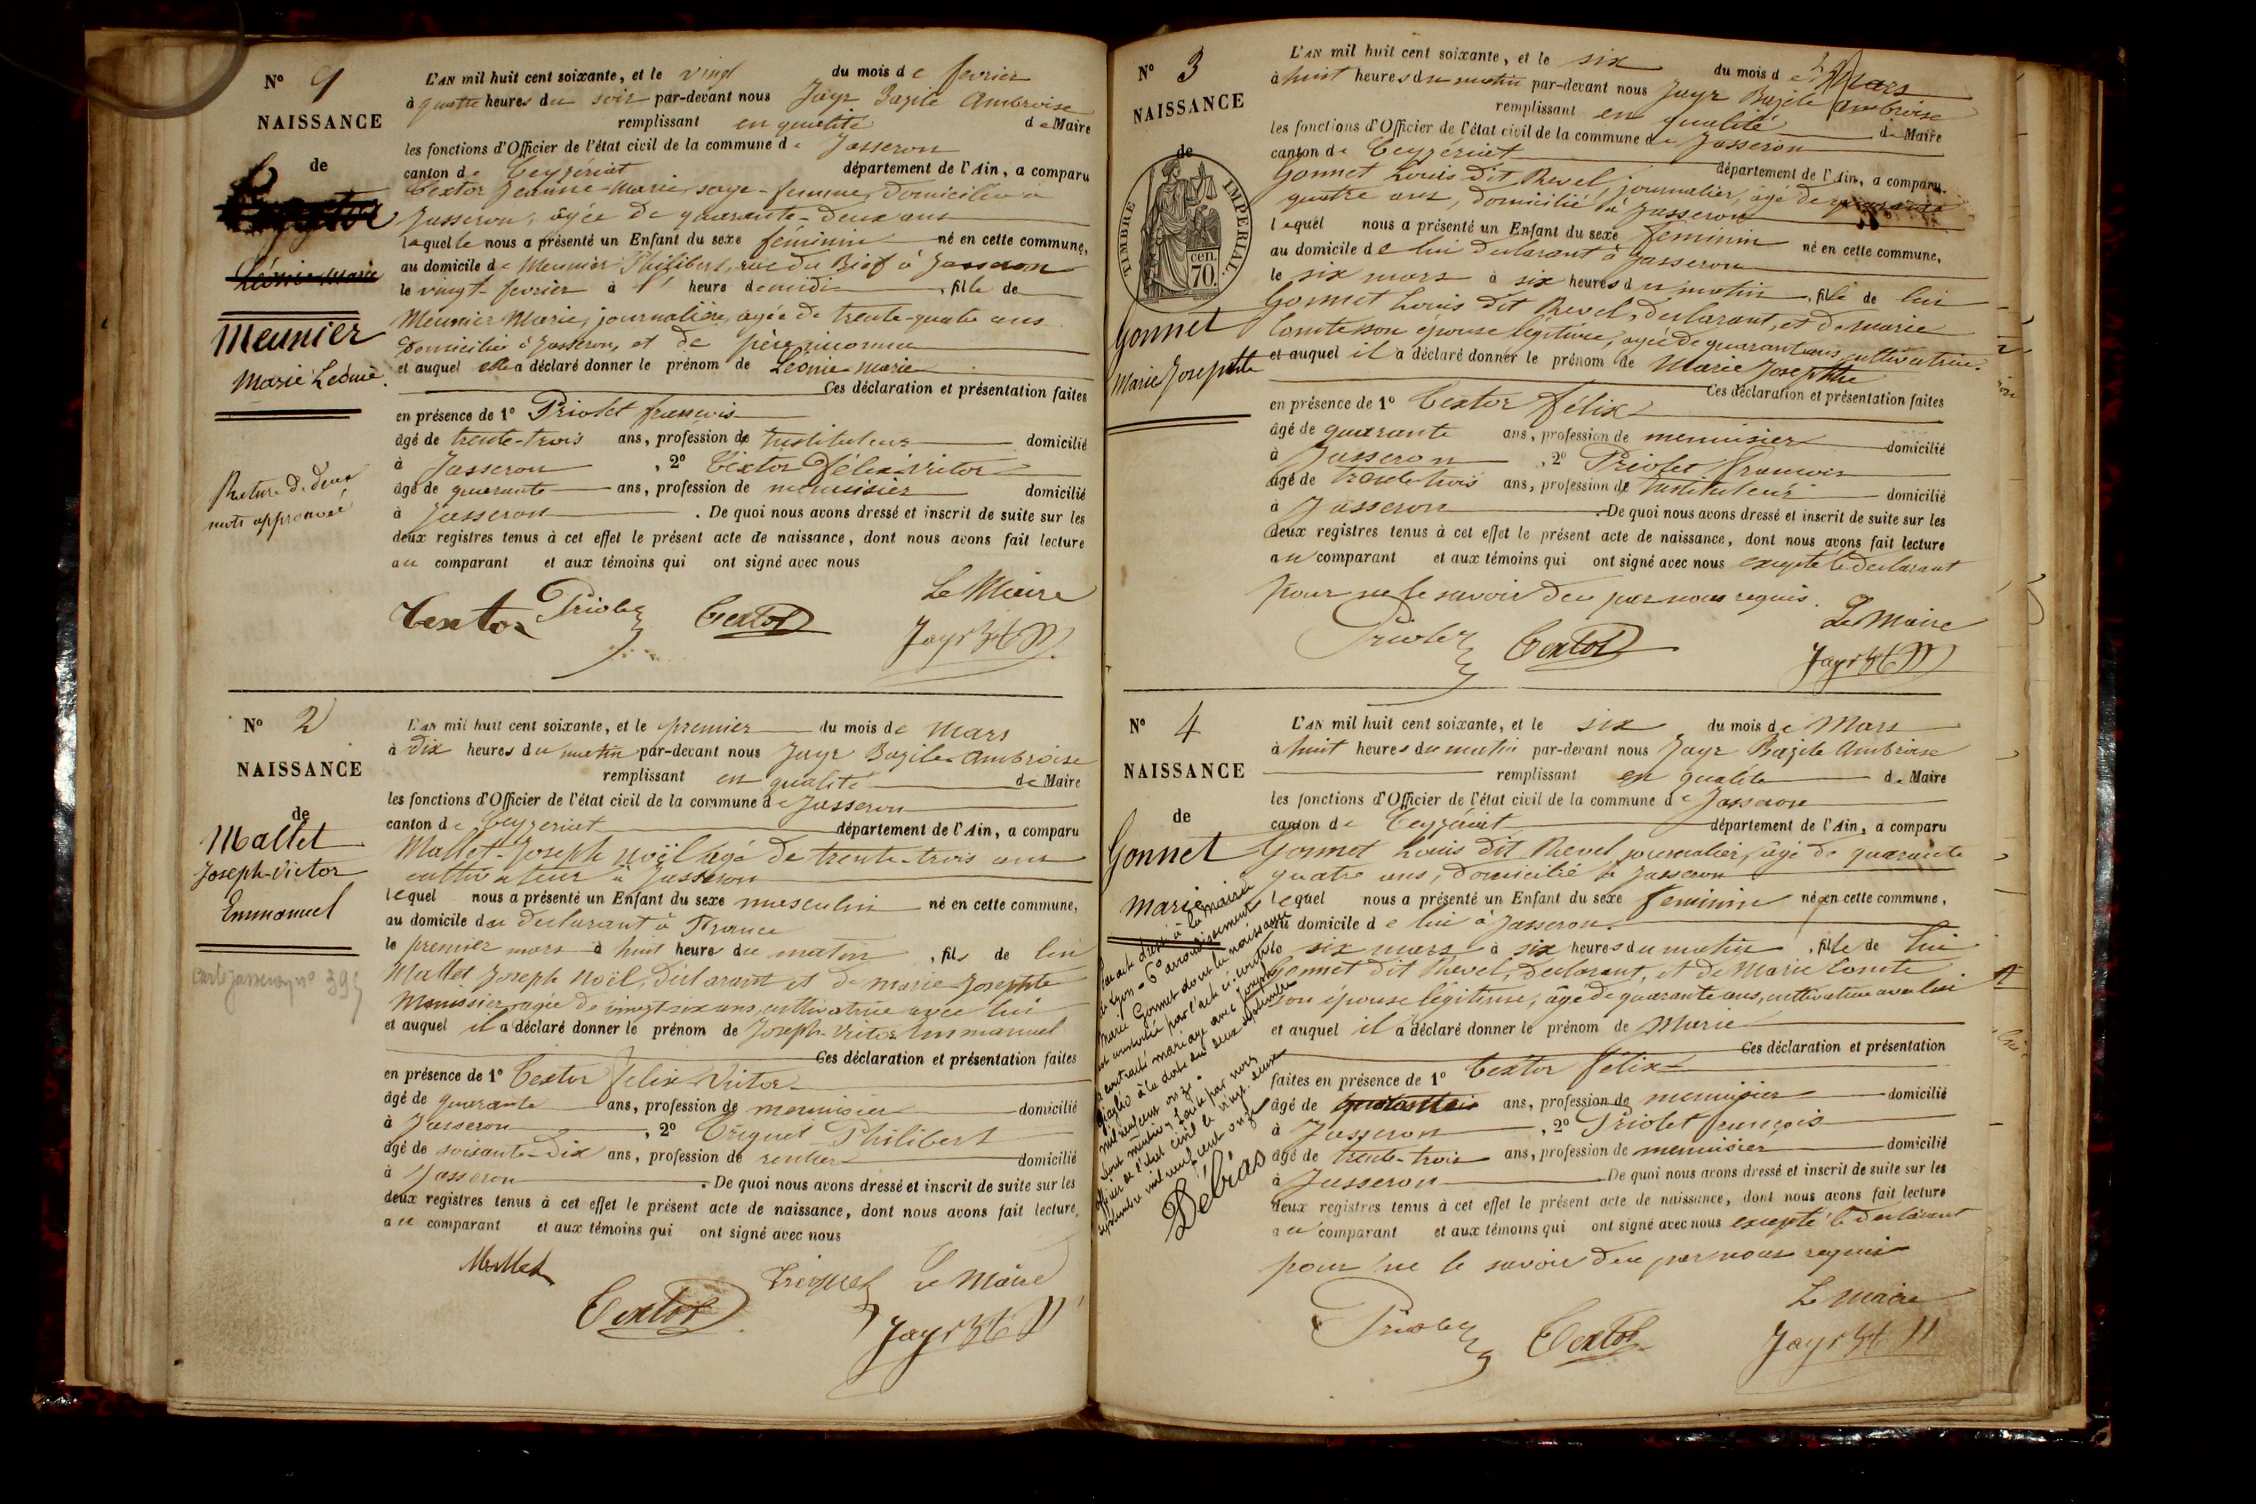 N° 9
NAISSANCE
de
Léonie Marie
Meunier
Marie Léonie
Rature de deux
mots approuvée
L'AN mil huit cent soixante, et le vingt du mois de fevrier
à quatre heures du soir par-devant nous Jayr Bazile Ambroise
remplissant en qualité de Maire
les fonctions d'Officier de l'état civil de la commune de Jasseron
canton de Ceyzériat département de l'Ain, a comparu
Textor Jeanne-Marie, sage-femme, domiciliée à
Jasseron, âgée de quarante-deux ans
laquelle nous a présenté un Enfant du sexe féminin né en cette commune,
au domicile de Meunier Philibert, rue du Bief à Jasseron
le vingt fevrier à 1 heure de midi, fille de
Meunier Marie, journalière, agée de trente-quatre ans
Domiciliée à Jasseron, et de père inconnu
et auquel elle a déclaré donner le prénom de Léonie Marie
Ces déclaration et présentation faites
en présence de 1° Priolet françois
âgé de trente-trois ans, profession de Instituteur domicilié
à Jasseron, 2° Textor Félix Victor
âgé de quarante ans, profession de menuisier domicilié
à Jasseron. De quoi nous avons dressé et inscrit de suite sur les
deux registres tenus à cet effet le présent acte de naissance, dont nous avons fait lecture
au comparant et aux témoins qui ont signé avec nous
Le Maire
Textor Priolet Textor Jayr
N° 2
NAISSANCE
de
Mallet
Joseph-Victor
Emmanuel
L'AN mil huit cent soixante, et le premier du mois de Mars
à dix heures du matin par-devant nous Jayr Bazile Ambroise
remplissant en qualité de Maire
les fonctions d'Officier de l'état civil de la commune de Jasseron
canton de Ceyzeriat département de l'Ain, a comparu
Mallet Joseph Noël âgé de trente-trois ans
cultivateur à Jasseron
lequel nous a présenté un Enfant du sexe masculin né en cette commune,
au domicile du declarant à France
le premier mars à huit heures du matin, fils de lui
Mallet Joseph Noël, déclarant et de Marie Josephte
Monissier, agée de vingt six ans, cultivatrice avec lui
et auquel il a déclaré donner le prénom de Joseph Victor Emmanuel
Ces déclaration et présentation faites
en présence de 1° Textor felix Victor
âgé de quarante ans, profession de menuisier domicilié
à Jasseron, 2° Triquet Philibert
âgé de soixante-dix ans, profession de rentier domicilié
à Jasseron. De quoi nous avons dressé et inscrit de suite sur les
deux registres tenus à cet effet le présent acte de naissance, dont nous avons fait lecture
au comparant et aux témoins qui ont signé avec nous
Mallet Triquet Le Maire
Textor Jayr
N° 3
NAISSANCE
de
TIMBRE IMPERIAL
70 cen.
Gonnet
Marie Josephte
L'AN mil huit cent soixante, et le six du mois de Mars
à huit heures du matin par-devant nous Jayr Bazile Ambroise
remplissant en qualité de Maire
les fonctions d'Officier de l'état civil de la commune de Jasseron
canton de Ceyzériat département de l'Ain, a comparu
Gonnet Louis dit Revel, journalier, âgé de quarante
quatre ans, domicilié à Jasseron
lequel nous a présenté un Enfant du sexe feminin né en cette commune,
au domicile de lui declarant à Jasseron
le six mars à six heures du matin, fille de lui
Gonnet Louis dit Revel, declarant, et de Marie
Comte son épouse légitime, agée de quarante ans, cultivatrice
et auquel il a déclaré donner le prénom de Marie Josephte
Ces déclaration et présentation faites
en présence de 1° Textor félix
âgé de quarante ans, profession de menuisier domicilié
à Jasseron, 2° Priolet francois
âgé de trente trois ans, profession de Instituteur domicilié
à Jasseron. De quoi nous avons dressé et inscrit de suite sur les
deux registres tenus à cet effet le présent acte de naissance, dont nous avons fait lecture
au comparant et aux témoins qui ont signé avec nous excepté le declarant
pour ne le savoir de ce par nous requis.
Le Maire
Priolet Textor Jayr
N° 4
NAISSANCE
de
Gonnet
Marie
Par acte dressé à la mairie
de Lyon - 6e arrondissement
Marie Gonnet dont la naissance
est constatée par l'acte ci-contre
a contracté mariage avec Joseph
à la date du deux septembre
mil neuf cent onze.
Dont mention faite par nous
officier de l'état civil le vingt-deux
septembre mil neuf cent onze
Débias
L'AN mil huit cent soixante, et le six du mois de Mars
à huit heures du matin par-devant nous Jayr Bazile Ambroise
remplissant en qualité de Maire
les fonctions d'Officier de l'état civil de la commune de Jasseron
canton de Ceyzériat département de l'Ain, a comparu
Gonnet Louis dit Revel journalier, âgé de quarante
quatre ans, domicilié à Jasseron
lequel nous a présenté un Enfant du sexe feminin né en cette commune,
au domicile de lui à Jasseron
le six mars à six heures du matin, fille de lui
Gonnet dit Revel, declarant, et de Marie Comte
son épouse légitime, âgée de quarante ans, cultivatrice avec lui
et auquel il a déclaré donner le prénom de Marie
Ces déclaration et présentation
faites en présence de 1° Textor félix
âgé de quarante ans, profession de menuisier domicilié
à Jasseron, 2° Priolet françois
âgé de trente-trois ans, profession de menuisier domicilié
à Jasseron. De quoi nous avons dressé et inscrit de suite sur les
deux registres tenus à cet effet le présent acte de naissance, dont nous avons fait lecture
au comparant et aux témoins qui ont signé avec nous excepté le declarant
pour ne le savoir de ce par nous requis
Le Maire
Priolet Textor Jayr